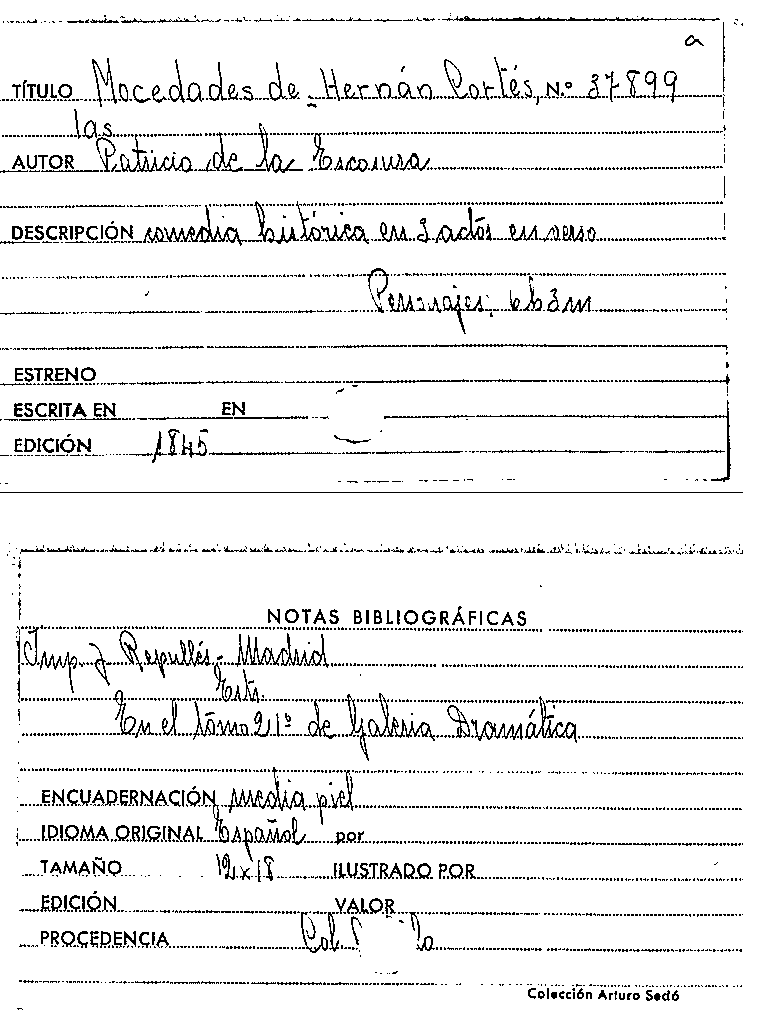 a
TÍTULO Mocedades de Hernán Cortés, N.º 37899
las
AUTOR Patricio de la Escosura
DESCRIPCIÓN comedia histórica en 3 actos en verso
Personajes: 6h3m
ESTRENO
ESCRITA EN EN
EDICIÓN 1845
NOTAS BIBLIOGRÁFICAS
Imp. J Repullés - Madrid
En el tomo 21º de Galeria Dramática
ENCUADERNACIÓN media piel
IDIOMA ORIGINAL Español por
TAMAÑO 12x18 ILUSTRADO POR
EDICIÓN VALOR
PROCEDENCIA Col.
Colección Arturo Sedó